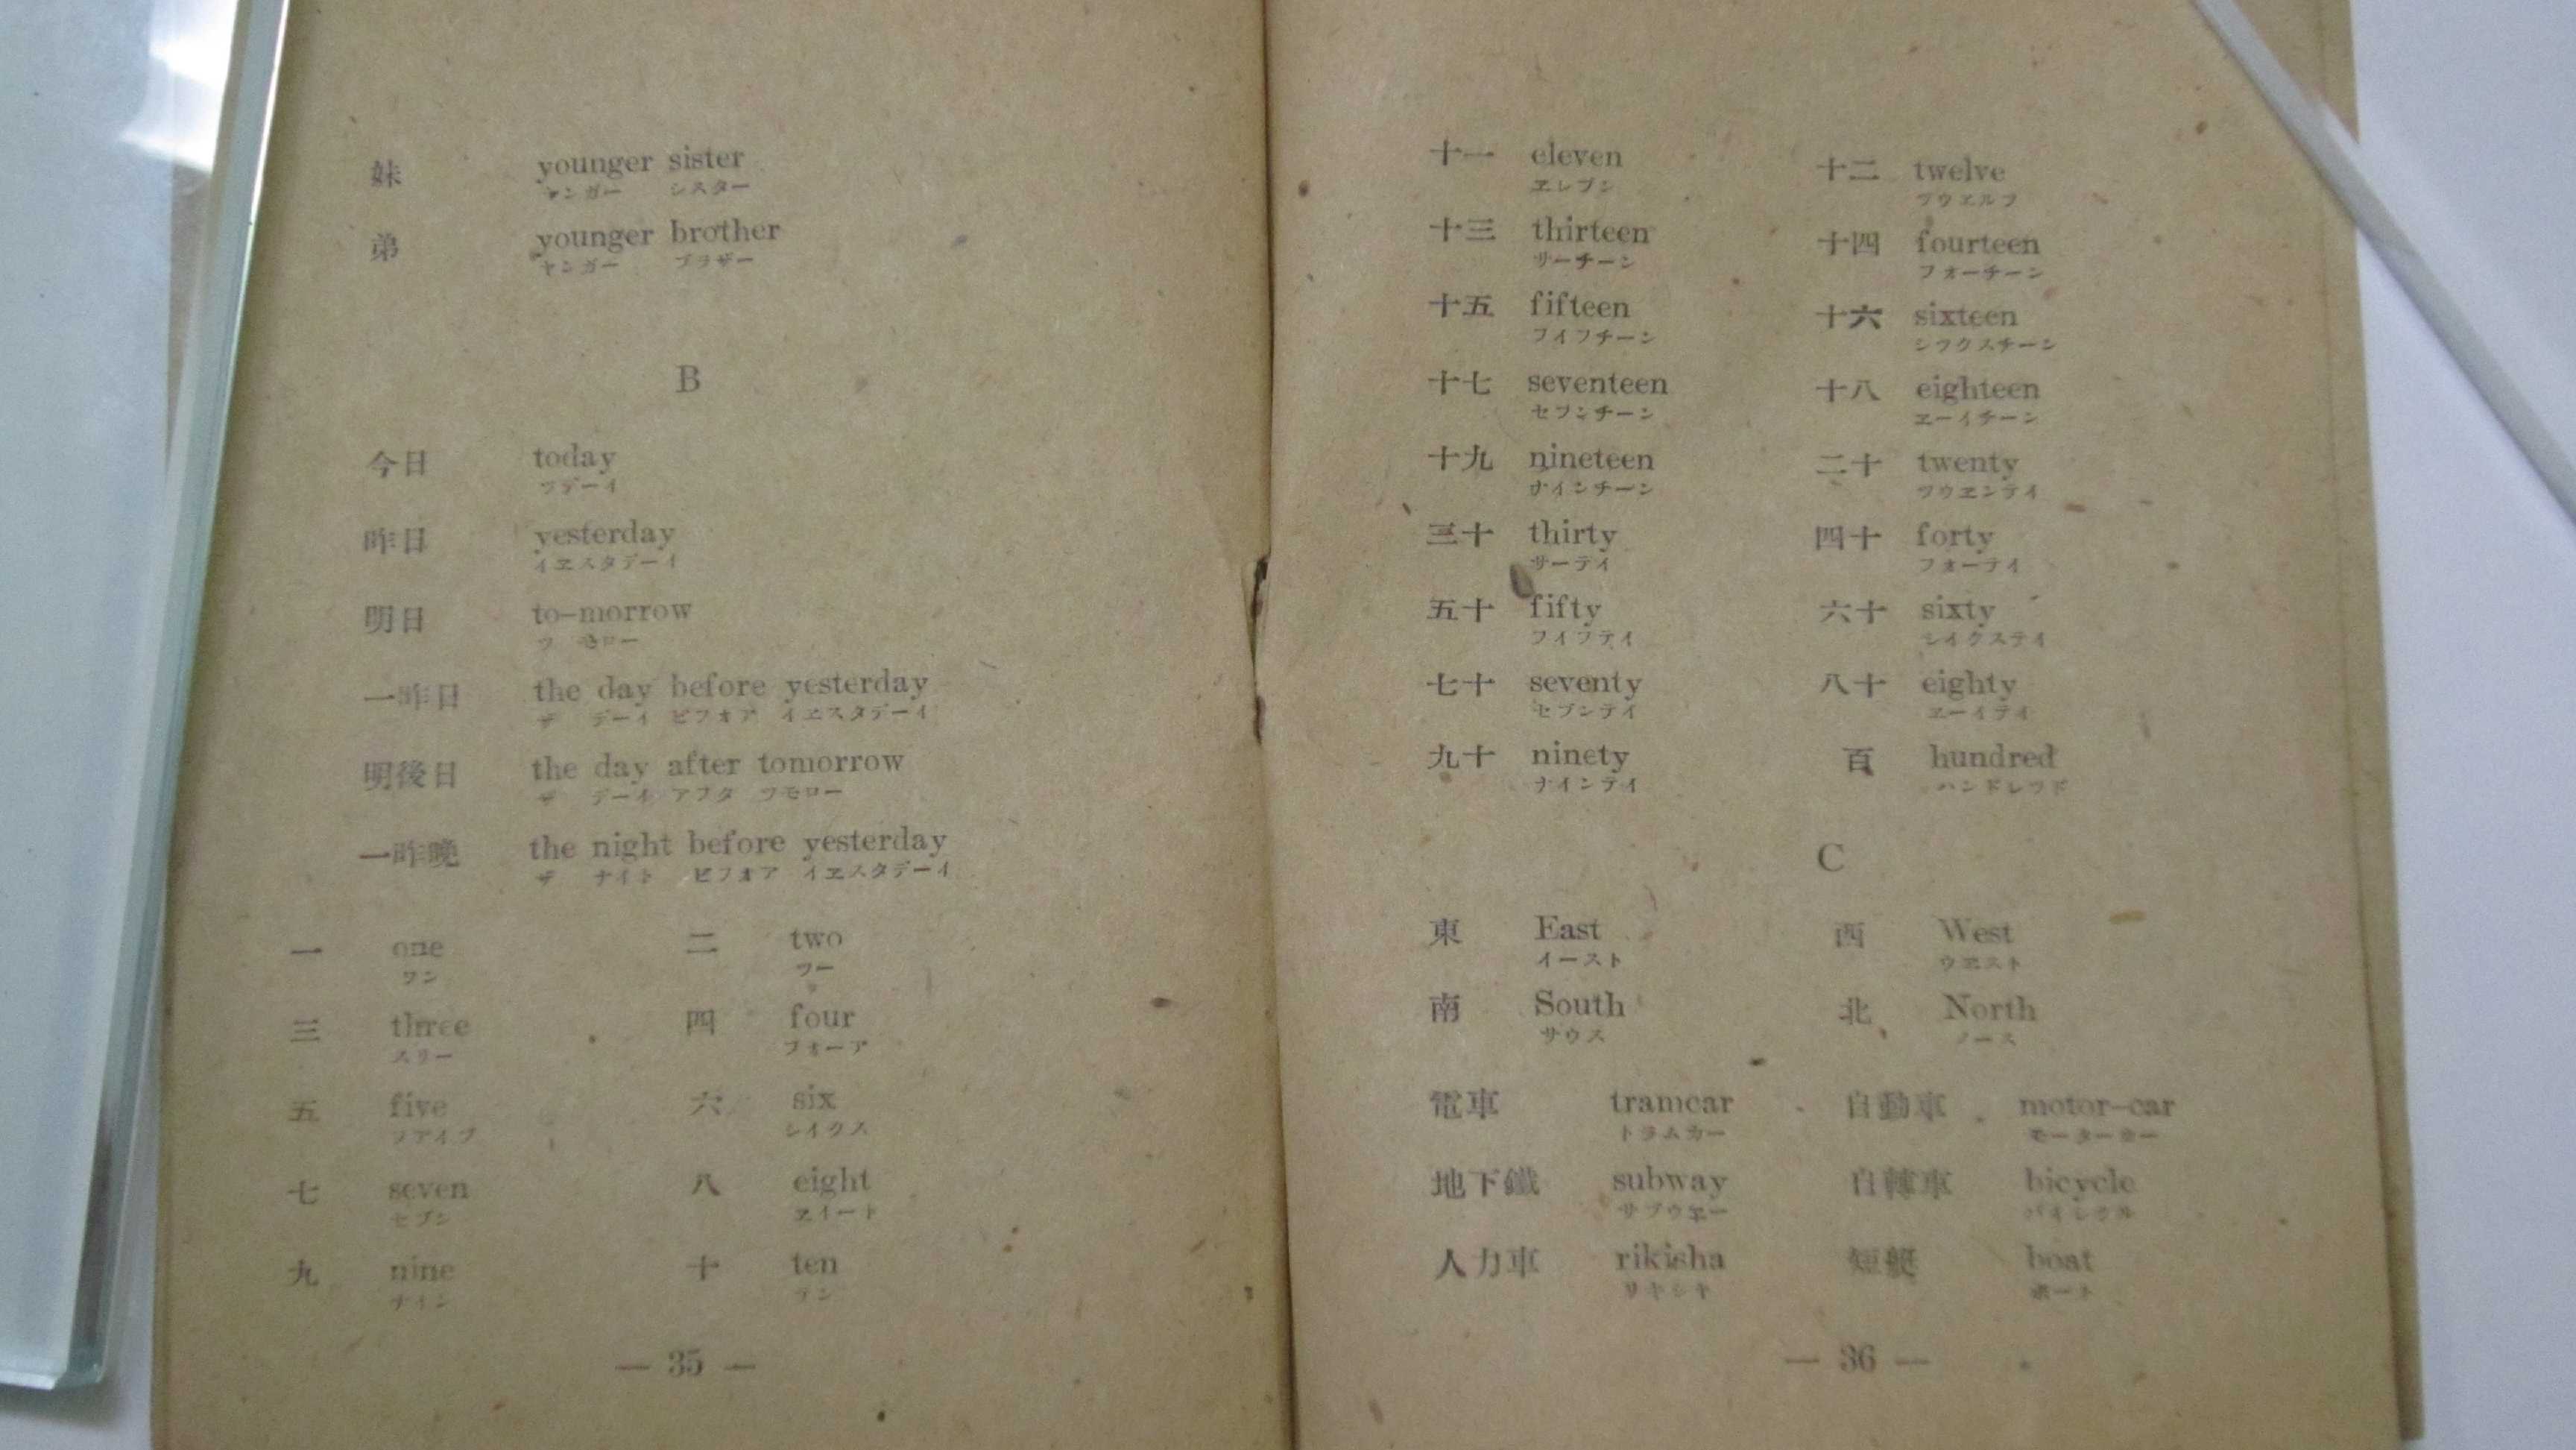 妹 younger sister
ヤンガー シスター
弟 younger brother
ヤンガー ブラザー
B
今日 today
ツデーイ
昨日 yesterday
イヱスタデーイ
明日 to-morrow
ツ モロー
一昨日 the day before yesterday
ザ デーイ ビフオア イヱスタデーイ
明後日 the day after tomorrow
ザ デーイ アフタ ツモロー
一昨晩 the night before yesterday
ザ ナイト ビフオア イヱスタデーイ
一 one 二 two
ワン ツー
三 three 四 four
スリー フオーア
五 five 六 six
フアイブ シイクス
七 seven 八 eight
セブン ヱイート
九 nine 十 ten
ナイン テン
— 35 —
十一 eleven 十二 twelve
ヱレブン ツウヱルブ
十三 thirteen 十四 fourteen
サーチーン フオーチーン
十五 fifteen 十六 sixteen
フイフチーン シツクスチーン
十七 seventeen 十八 eighteen
セブンチーン ヱーイチーン
十九 nineteen 二十 twenty
ナインチーン ツウヱンテイ
三十 thirty 四十 forty
サーテイ フオーテイ
五十 fifty 六十 sixty
フイフテイ シイクステイ
七十 seventy 八十 eighty
セブンテイ ヱーイテイ
九十 ninety 百 hundred
ナインテイ ハンドレツド
C
東 East 西 West
イースト ウヱスト
南 South 北 North
サウス ノース
電車 tramcar 自動車 motor-car
トラムカー モーターカー
地下鐵 subway 自轉車 bicycle
サブウヱー バイシクル
人力車 rikisha 短艇 boat
リキシヤ ボート
— 36 —